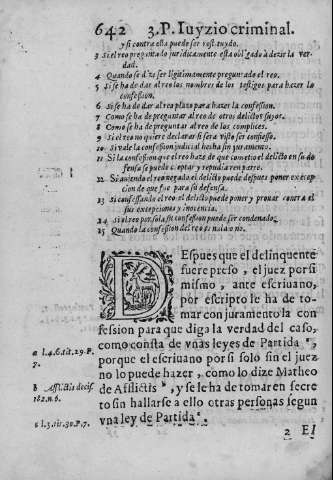 642 3. P. Iuyzio criminal.
y si contra esta puede ser restituydo.
3 Si el reo preguntado juridicamente esta obligado à dezir la verdad.
4 Quando se dize ser ligitimamente preguntado el reo.
5 Si se ha de dar al reo los nombres de los testigos para hazer la confession.
6 Si se ha de dar al reo plazo para hazer la confession.
7 Como se ha de preguntar al reo de otros delictos suyos.
8 Como se ha de preguntar al reo de los complices.
9 Si el reo no quiere declarar si sera visto ser confesso.
10 Si vale la confession judicial hecha sin juramento.
11 Si la confession que el reo haze de que cometio el delicto en su defensa se puede aceptar y repudiar en parte.
12 Si auiendo el reo negado el delicto puede despues poner excepcion de que fue para su defensa.
13 Si confessando el reo el delicto puede poner y prouar contra el sus excepciones y inocencia.
14 Si el reo por sola su confession puede ser condenado.
15 Quando la confession del reo es nula o no.
DEspues que el delinquente
fuere preso, el juez por si
mismo, ante escriuano,
por escripto le ha de to-
mar con juramento la con
fession para que diga la verdad del caso,
como consta de vnas leyes de Partida a,
porque el escriuano por si solo sin el juez
no lo puede hazer, como lo dize Matheo
de Afflictis b, y se le ha de tomar en secre
to sin hallarse a ello otras personas segun
vna ley de Partida c.
a l.4.6.tit.29.P.
7.
b Afflictis decis.
162.n.6.
c l.3.tit.30.P.7.
2 El